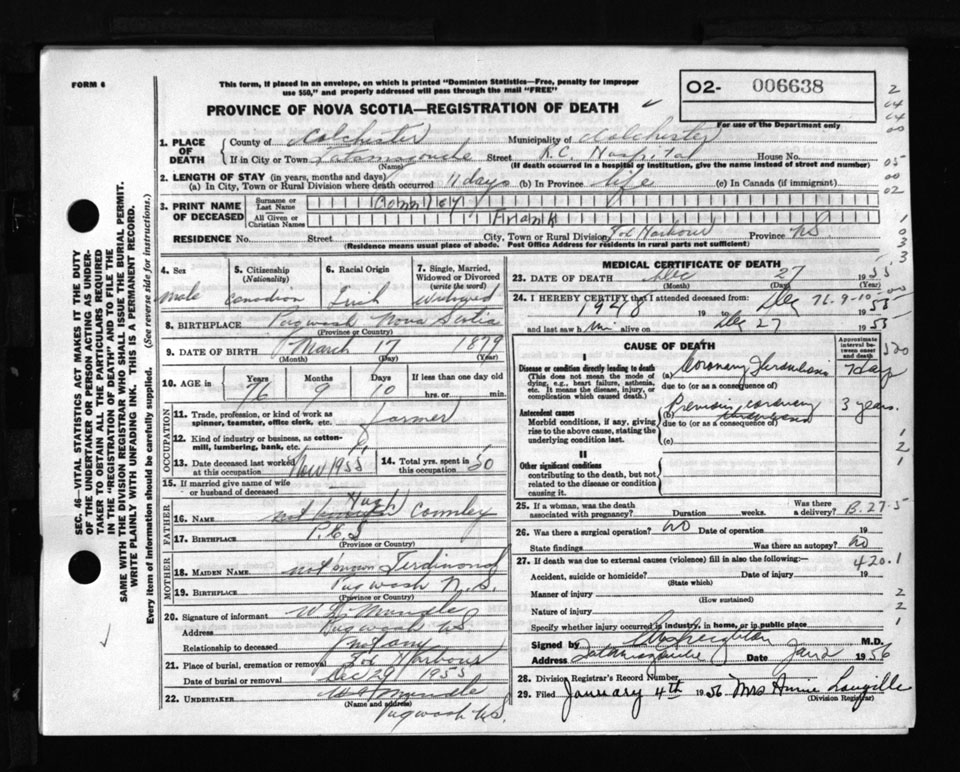 FORM 6
This form, if placed in an envelope, on which is printed "Dominion Statistics—Free, penalty for improper
use $50," and properly addressed will pass through the mail "FREE"
PROVINCE OF NOVA SCOTIA—REGISTRATION OF DEATH
O2- 006638
For use of the Department only
1. PLACE OF DEATH
County of Colchester Municipality of Colchester
If in City or Town Tatamagouche Street R.C. Hospital House No.
(Name) (If death occurred in a hospital or institution, give the name instead of street and number)
2. LENGTH OF STAY (in years, months and days)
(a) In City, Town or Rural Division where death occurred 11 days (b) In Province life (c) In Canada (if immigrant)
3. PRINT NAME OF DECEASED
Surname or Last Name
All Given or Christian Names Frank
RESIDENCE No. Street City, Town or Rural Division Fox Harbour Province N.S.
(Residence means usual place of abode. Post Office Address for residents in rural parts not sufficient)
4. Sex male
5. Citizenship (Nationality) Canadian
6. Racial Origin Irish
7. Single, Married, Widowed or Divorced (write the word) Widowed
8. BIRTHPLACE Pugwash Nova Scotia
(Province or Country)
9. DATE OF BIRTH March 17 1879
(Month) (Day) (Year)
10. AGE in Years Months Days If less than one day old
76 9 10 hrs. or min.
OCCUPATION
11. Trade, profession, or kind of work as spinner, teamster, office clerk, etc. Farmer
12. Kind of industry or business, as cotton-mill, lumbering, bank, etc.
13. Date deceased last worked at this occupation Nov 1955
14. Total yrs. spent in this occupation 50
15. If married give name of wife or husband of deceased
FATHER
16. NAME Hugh
17. BIRTHPLACE P.E.I
(Province or Country)
MOTHER
18. MAIDEN NAME not known Ferdinand
19. BIRTHPLACE Pugwash N.S.
(Province or Country)
20. Signature of informant Mundle
Address Pugwash NS
Relationship to deceased not any
21. Place of burial, cremation or removal Fox Harbour
Date of burial or removal Dec 29 1955
22. UNDERTAKER Mundle
(Name and address)
Pugwash N.S.
MEDICAL CERTIFICATE OF DEATH
23. DATE OF DEATH Dec 27 1955
(Month) (Day) (Year)
24. I HEREBY CERTIFY that I attended deceased from: 76.9-10
1948 19 to Dec 1955
and last saw him alive on Dec 27 1955
CAUSE OF DEATH
Approximate interval between onset and death
I
Disease or condition directly leading to death
(This does not mean the mode of dying, e.g., heart failure, asthenia, etc. It means the disease, injury, or complication which caused death.)
(a) Coronary Thrombosis 7 days
due to (or as a consequence of)
Antecedent causes
Morbid conditions, if any, giving rise to the above cause, stating the underlying condition last.
(b) Previous coronary 3 years.
due to (or as a consequence of)
(c)
II
Other significant conditions
contributing to the death, but not related to the disease or condition causing it.
25. If a woman, was the death associated with pregnancy? Duration weeks. Was there a delivery? B.27.5
26. Was there a surgical operation? no Date of operation 19
State findings Was there an autopsy? no
27. If death was due to external causes (violence) fill in also the following:— 420.1
Accident, suicide or homicide? Date of injury 19
(State which)
Manner of injury
(How sustained)
Nature of injury
Specify whether injury occurred in industry, in home, or in public place
Signed by M.D.
Address Tatamagouche Date Jan 2 1956
28. Division Registrar's Record Number
29. Filed January 4th 1956 Mrs Annie Langille
(Division Registrar)
SEC. 46—VITAL STATISTICS ACT MAKES IT THE DUTY
OF THE UNDERTAKER OR PERSON ACTING AS UNDER-
TAKER TO OBTAIN ALL THE PARTICULARS REQUIRED
IN THE "REGISTRATION OF DEATH" AND TO FILE THE
SAME WITH THE DIVISION REGISTRAR WHO SHALL ISSUE THE BURIAL PERMIT.
WRITE PLAINLY WITH UNFADING INK. THIS IS A PERMANENT RECORD.
Every item of information should be carefully supplied. (See reverse side for instructions.)